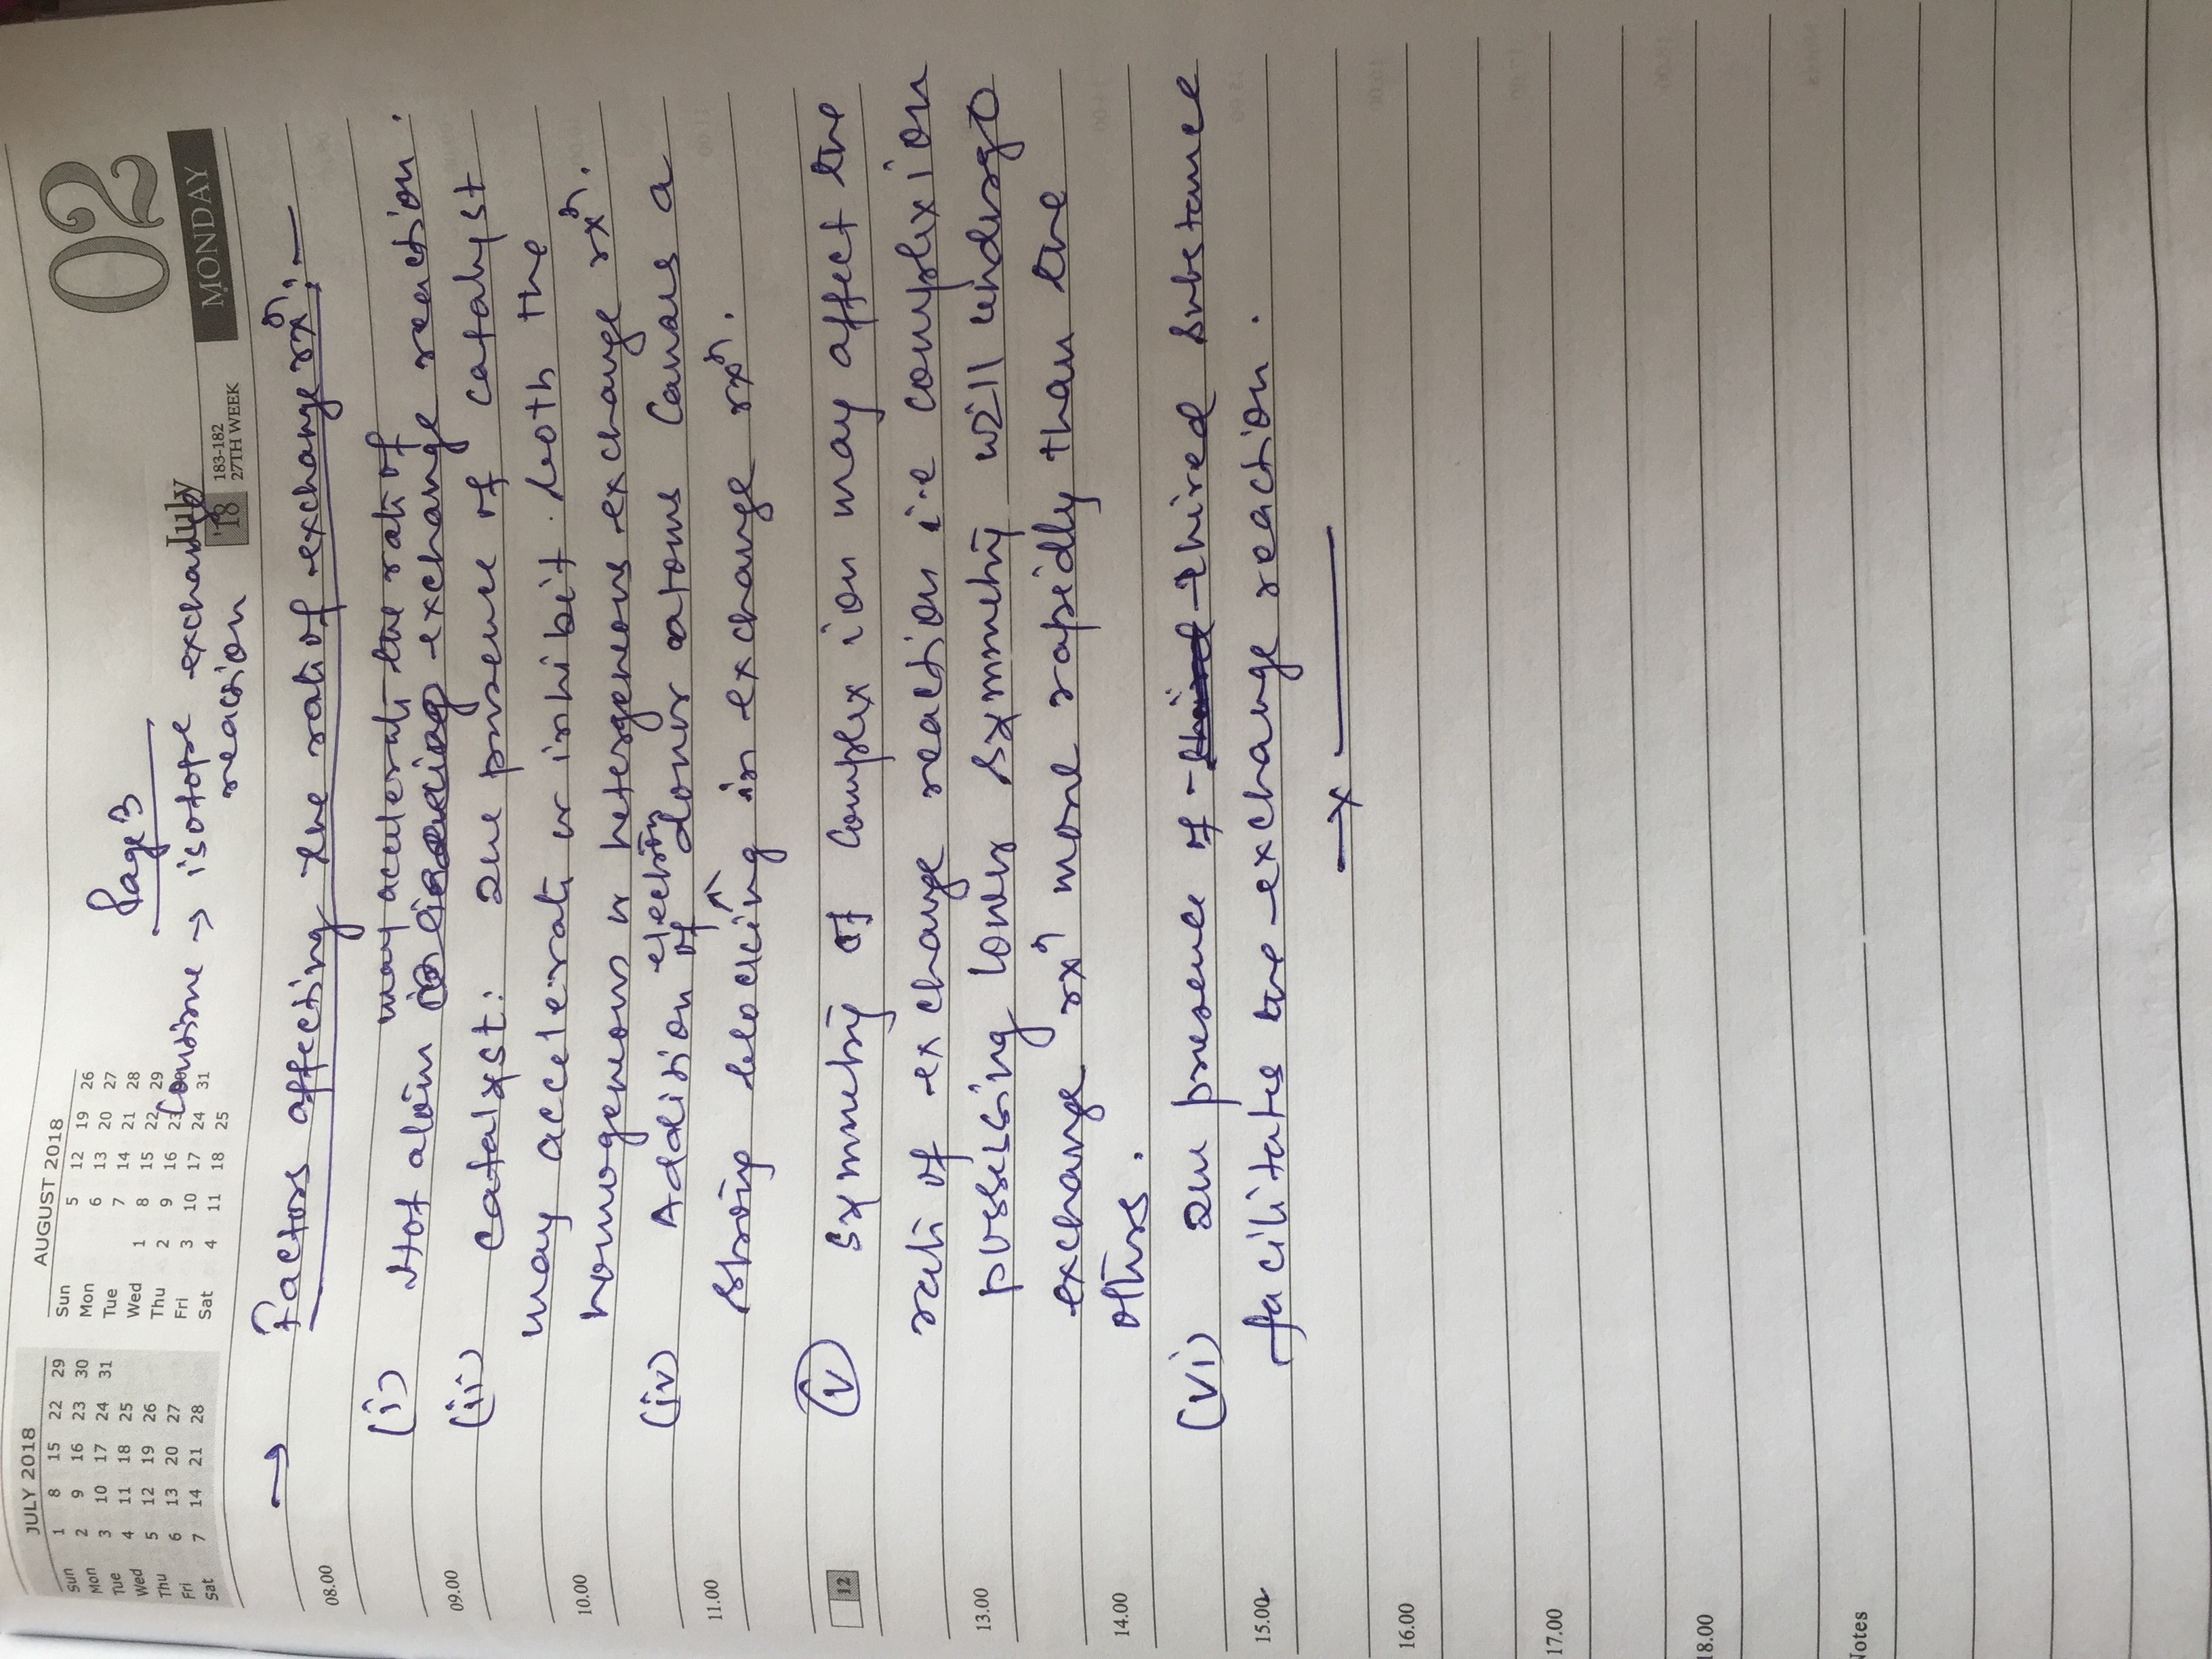 JULY 2018
Sun 1 8 15 22 29
Mon 2 9 16 23 30
Tue 3 10 17 24 31
Wed 4 11 18 25
Thu 5 12 19 26
Fri 6 13 20 27
Sat 7 14 21 28
AUGUST 2018
Sun 5 12 19 26
Mon 6 13 20 27
Tue 7 14 21 28
Wed 1 8 15 22 29
Thu 2 9 16 23
Fri 3 10 17 24 31
Sat 4 11 18 25
Page 3
02
July
'18
183-182
27TH WEEK
MONDAY
→ isotope exchange
reaction
→ Factors affecting the rate of exchange rxn:—
08.00
may accelerate the rate of
(i) Hot atom exchange reaction.
09.00
(ii) Catalyst: The presence of catalyst
may accelerate or inhibit both the
10.00
homogenous or heterogenous exchange rxn.
electron
(iv) Addition of ^ donor atoms causes a
11.00
strong blocking in exchange rxn.
12
(v) Symmetry of complex ion may affect the
rate of exchange reaction i.e complex ion
13.00
possessing lower symmetry will undergo
exchange rxn more rapidly than the
14.00
others.
(vi) The presence of third substance
15.00
facilitates the exchange reaction.
—x—
16.00
17.00
18.00
Notes